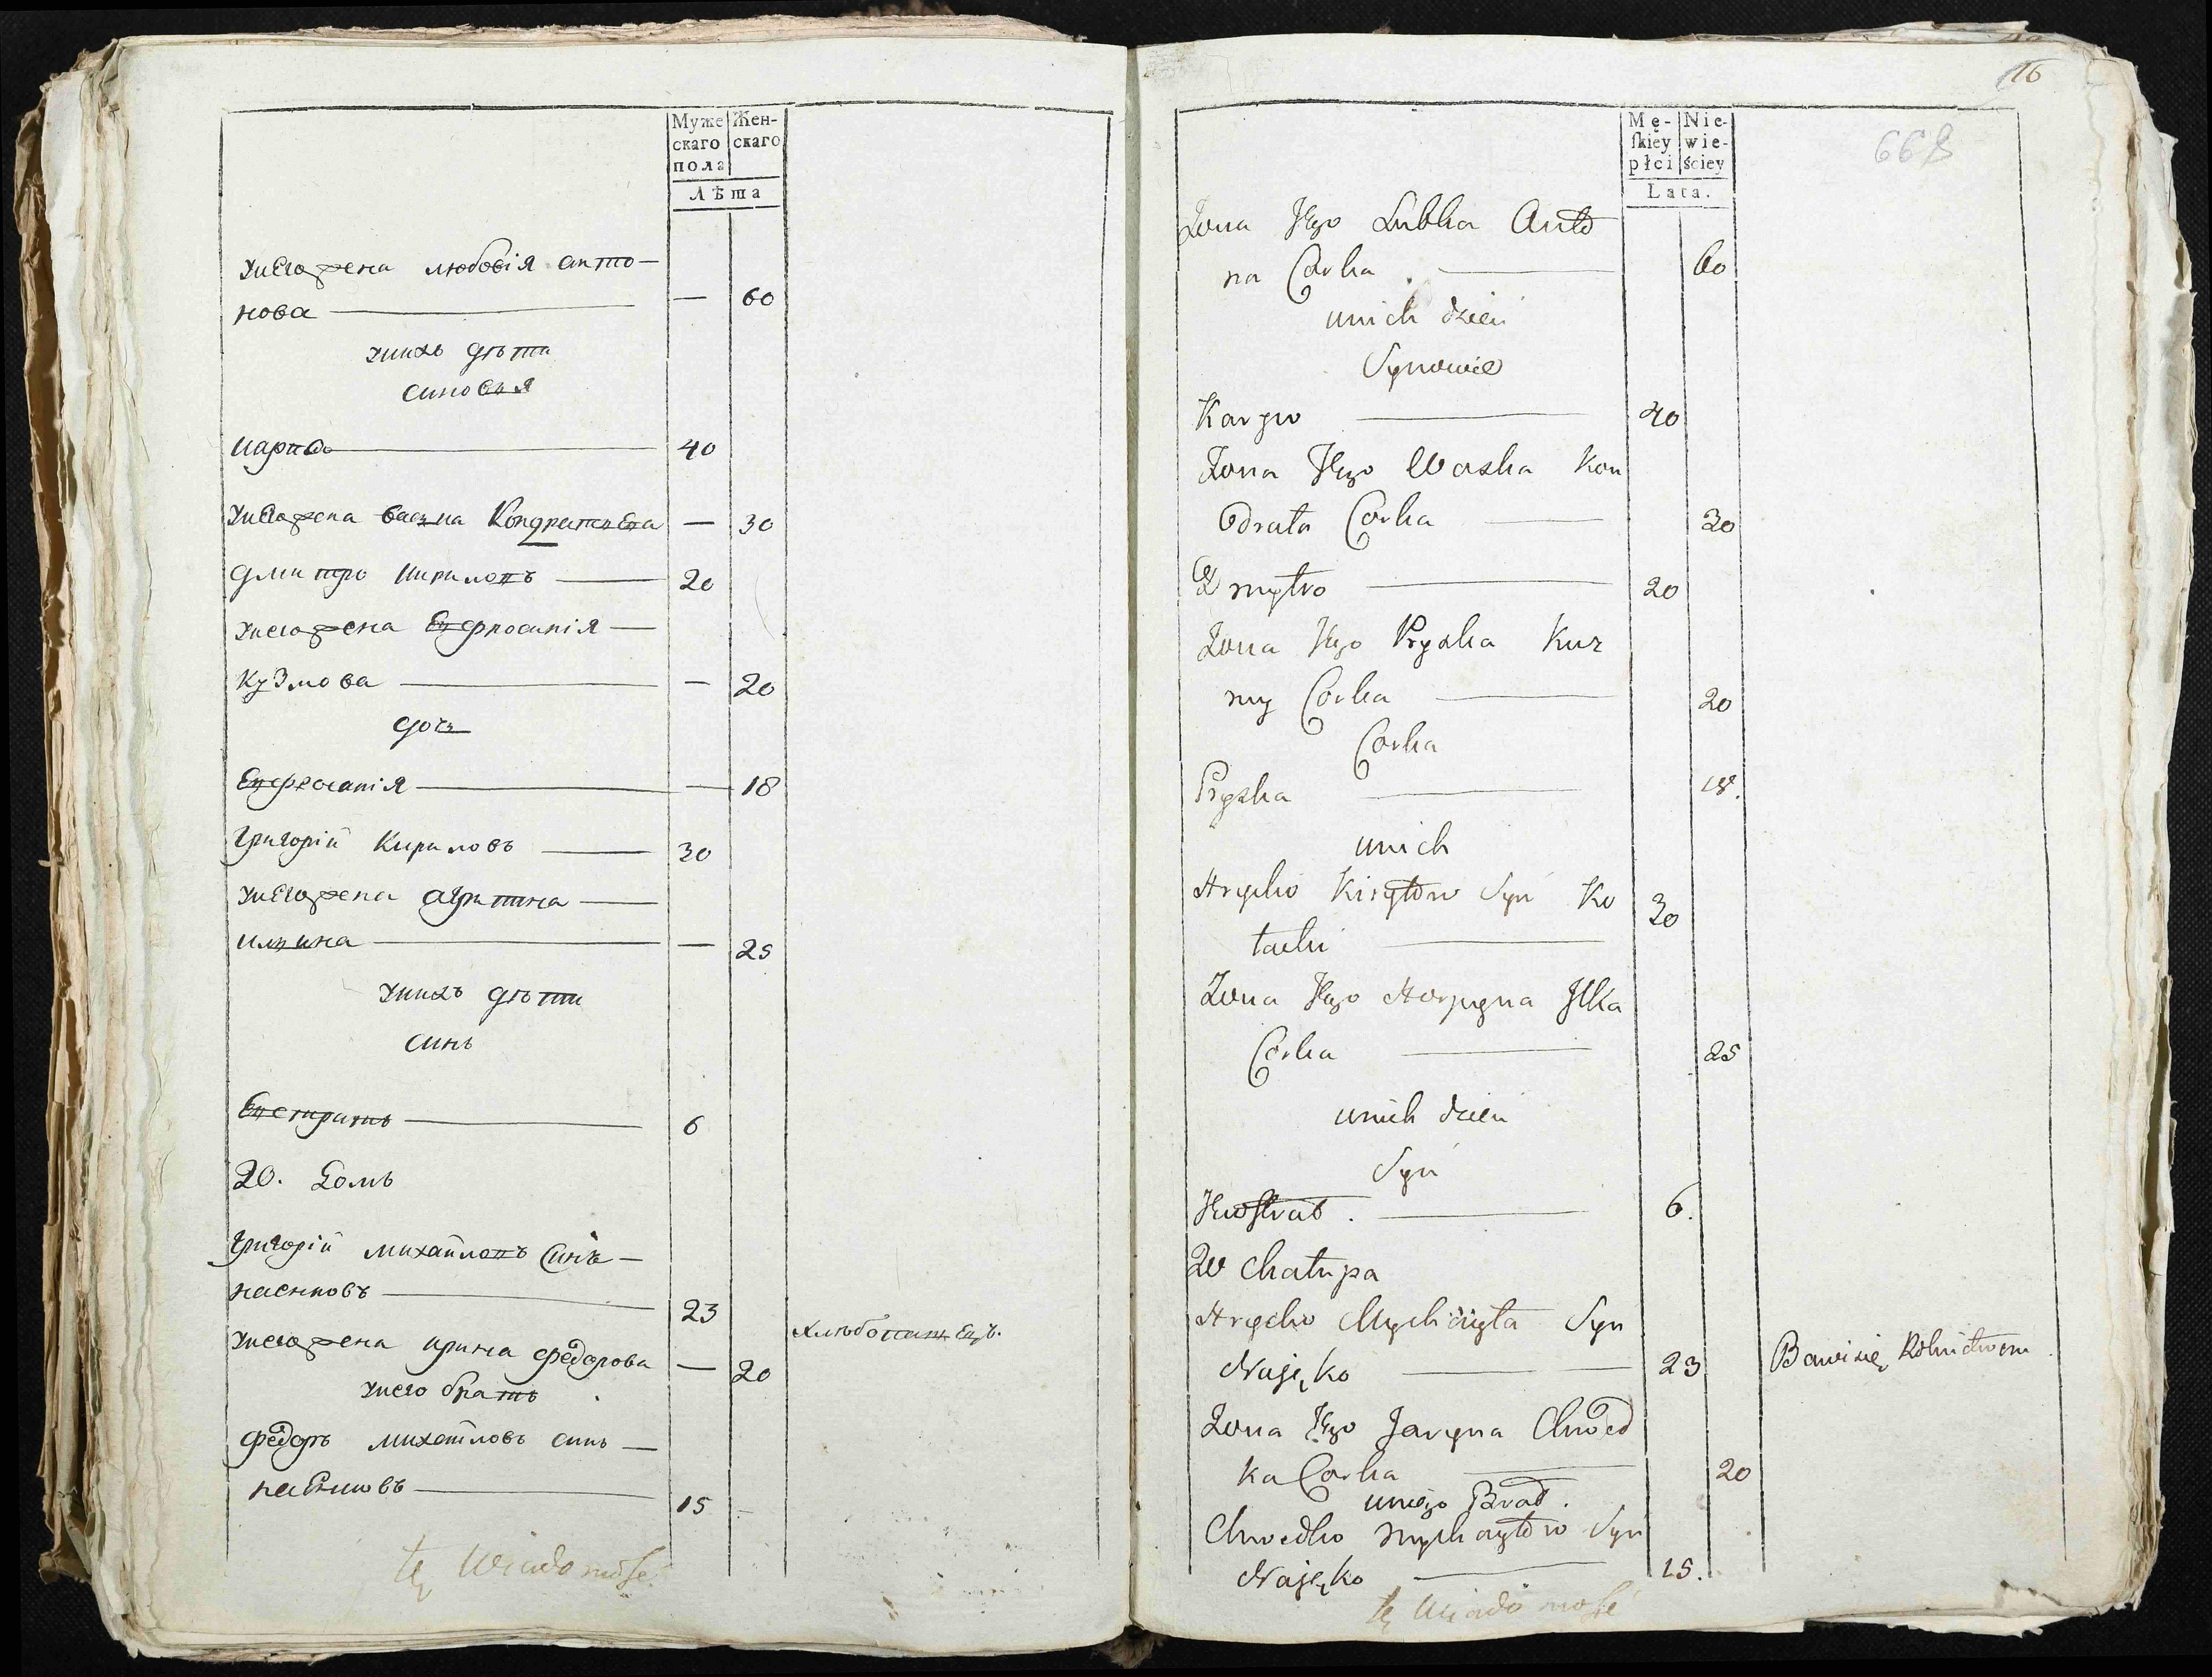 Муже
скаго
пола
Жен-
скаго
Лѣта
унегожена любовія анто-
нова — 60
унихъ дѣти
синовя
Карпъ 40
унегожена васка Кондратьева — 30
дмитро Кириловъ 20
унегожена Еуфросинія
Кузмова — 20
дочь
Еуфросинія — 18
Григорій Кириловъ 30
унегожена
илина — 25
унихъ дѣти
синъ
Еустратъ 6
20. Домъ
Григорій михайловъ Синъ
23
унегожена ирина федорова — 20
хлѣбопашецъ.
унего братъ
федоръ михайловъ синъ
15
tę Wiadomość
16
668
Mę-
skiey
płci
Nie-
wie-
ściey
Lata.
Zona Jego Lubka Anto
na Corka 60
unich dzieci
Synowie
Karpo 40
Zona Jego Waska Kon
drata Corka 30
Dmytro 20
Zona Jego Pryska Kuz
my Corka 20
Corka
Pryska 18.
unich
Hrycko Kiryłow Syn Ko
30
Zona Jego Horpyna Ilka
Corka 25
unich dzieci
Syn
Jewstrat. 6.
20 Chałupa
Hrycko Mychayła Syn
Najęko 23 Bawi się Rolnictwem
Zona Jego Jaryna Chwed
ka Corka 20
uniego Brat.
Chwedko Mychayłow Syn
Najęko 15.
tę Wiadomość